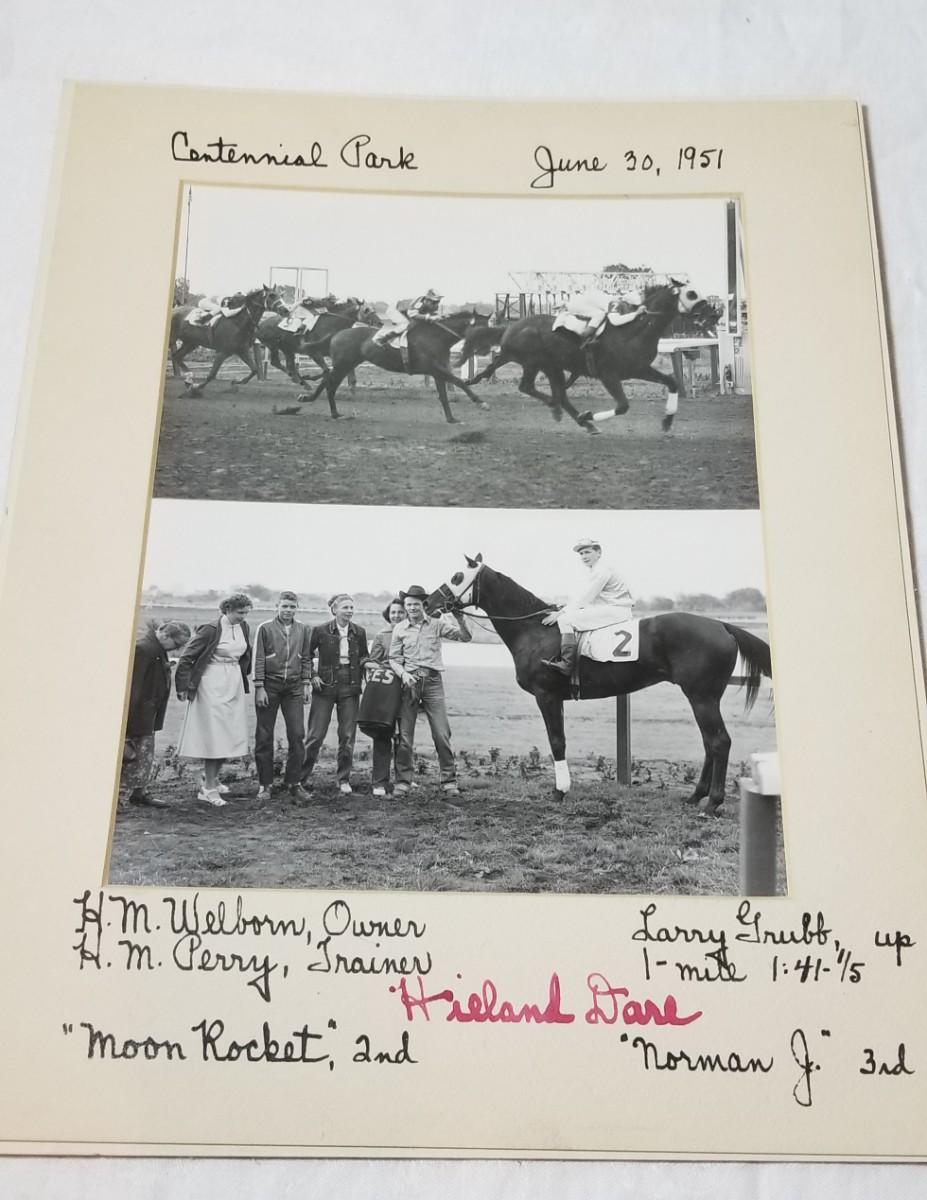 Centennial Park June 30, 1951
EES
2
H. M. Welborn, Owner
H. M. Perry, Trainer
Larry Grubb, up
1-mile 1:41-1/5
Hieland Dare
"Moon Rocket," 2nd
"Norman J." 3rd